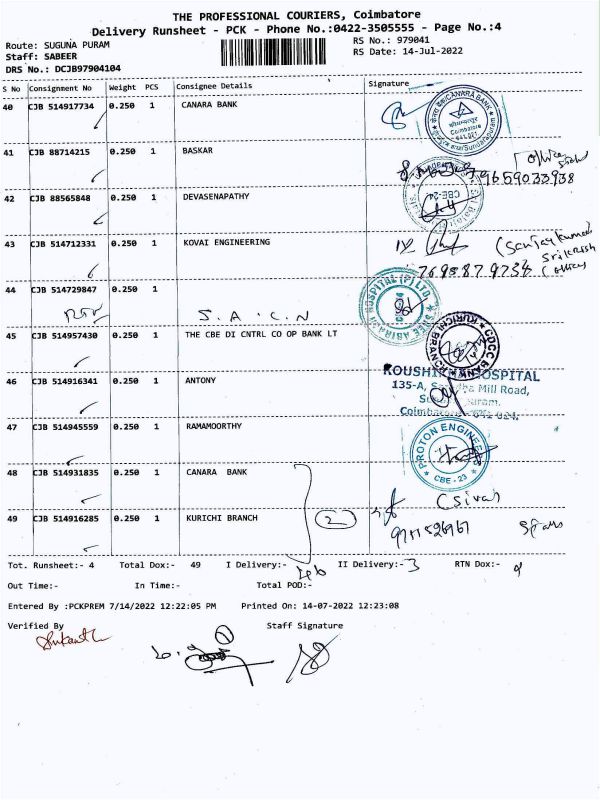 THE PROFESSIONAL COURIERS, Coimbatore
Delivery Runsheet - PCK - Phone No.:0422-3505555 - Page No.:4
Route: SUGUNA PURAM RS No.: 979041
Staff: SABEER RS Date: 14-Jul-2022
DRS No.: DCJB97904104
S No Consignment No Weight PCS Consignee Details Signature
40 CJB 514917734 0.250 1 CANARA BANK
CANARA BANK
Coimbatore
41 CJB 88714215 0.250 1 BASKAR
9659033938
42 CJB 88565848 0.250 1 DEVASENAPATHY
CBE-24
43 CJB 514712331 0.250 1 KOVAI ENGINEERING
(Sanjaykumar
44 CJB 514729847 0.250 1
S.A.C.N
SREE ABIRAMI HOSPITAL (P) LTD
45 CJB 514957430 0.250 1 THE CBE DI CNTRL CO OP BANK LT
CDCC BANK KURICHI BRANCH
46 CJB 514916341 0.250 1 ANTONY
HOSPITAL
135-A, Mill Road,
47 CJB 514945559 0.250 1 RAMAMOORTHY
PROTON ENGINEERS
CBE - 23
48 CJB 514931835 0.250 1 CANARA BANK
(Siva)
49 CJB 514916285 0.250 1 KURICHI BRANCH
2
Tot. Runsheet:- 4 Total Dox:- 49 I Delivery:- 46 II Delivery:- 3 RTN Dox:-
Out Time:- In Time:- Total POD:-
Entered By :PCKPREM 7/14/2022 12:22:05 PM Printed On: 14-07-2022 12:23:08
Verified By Staff Signature